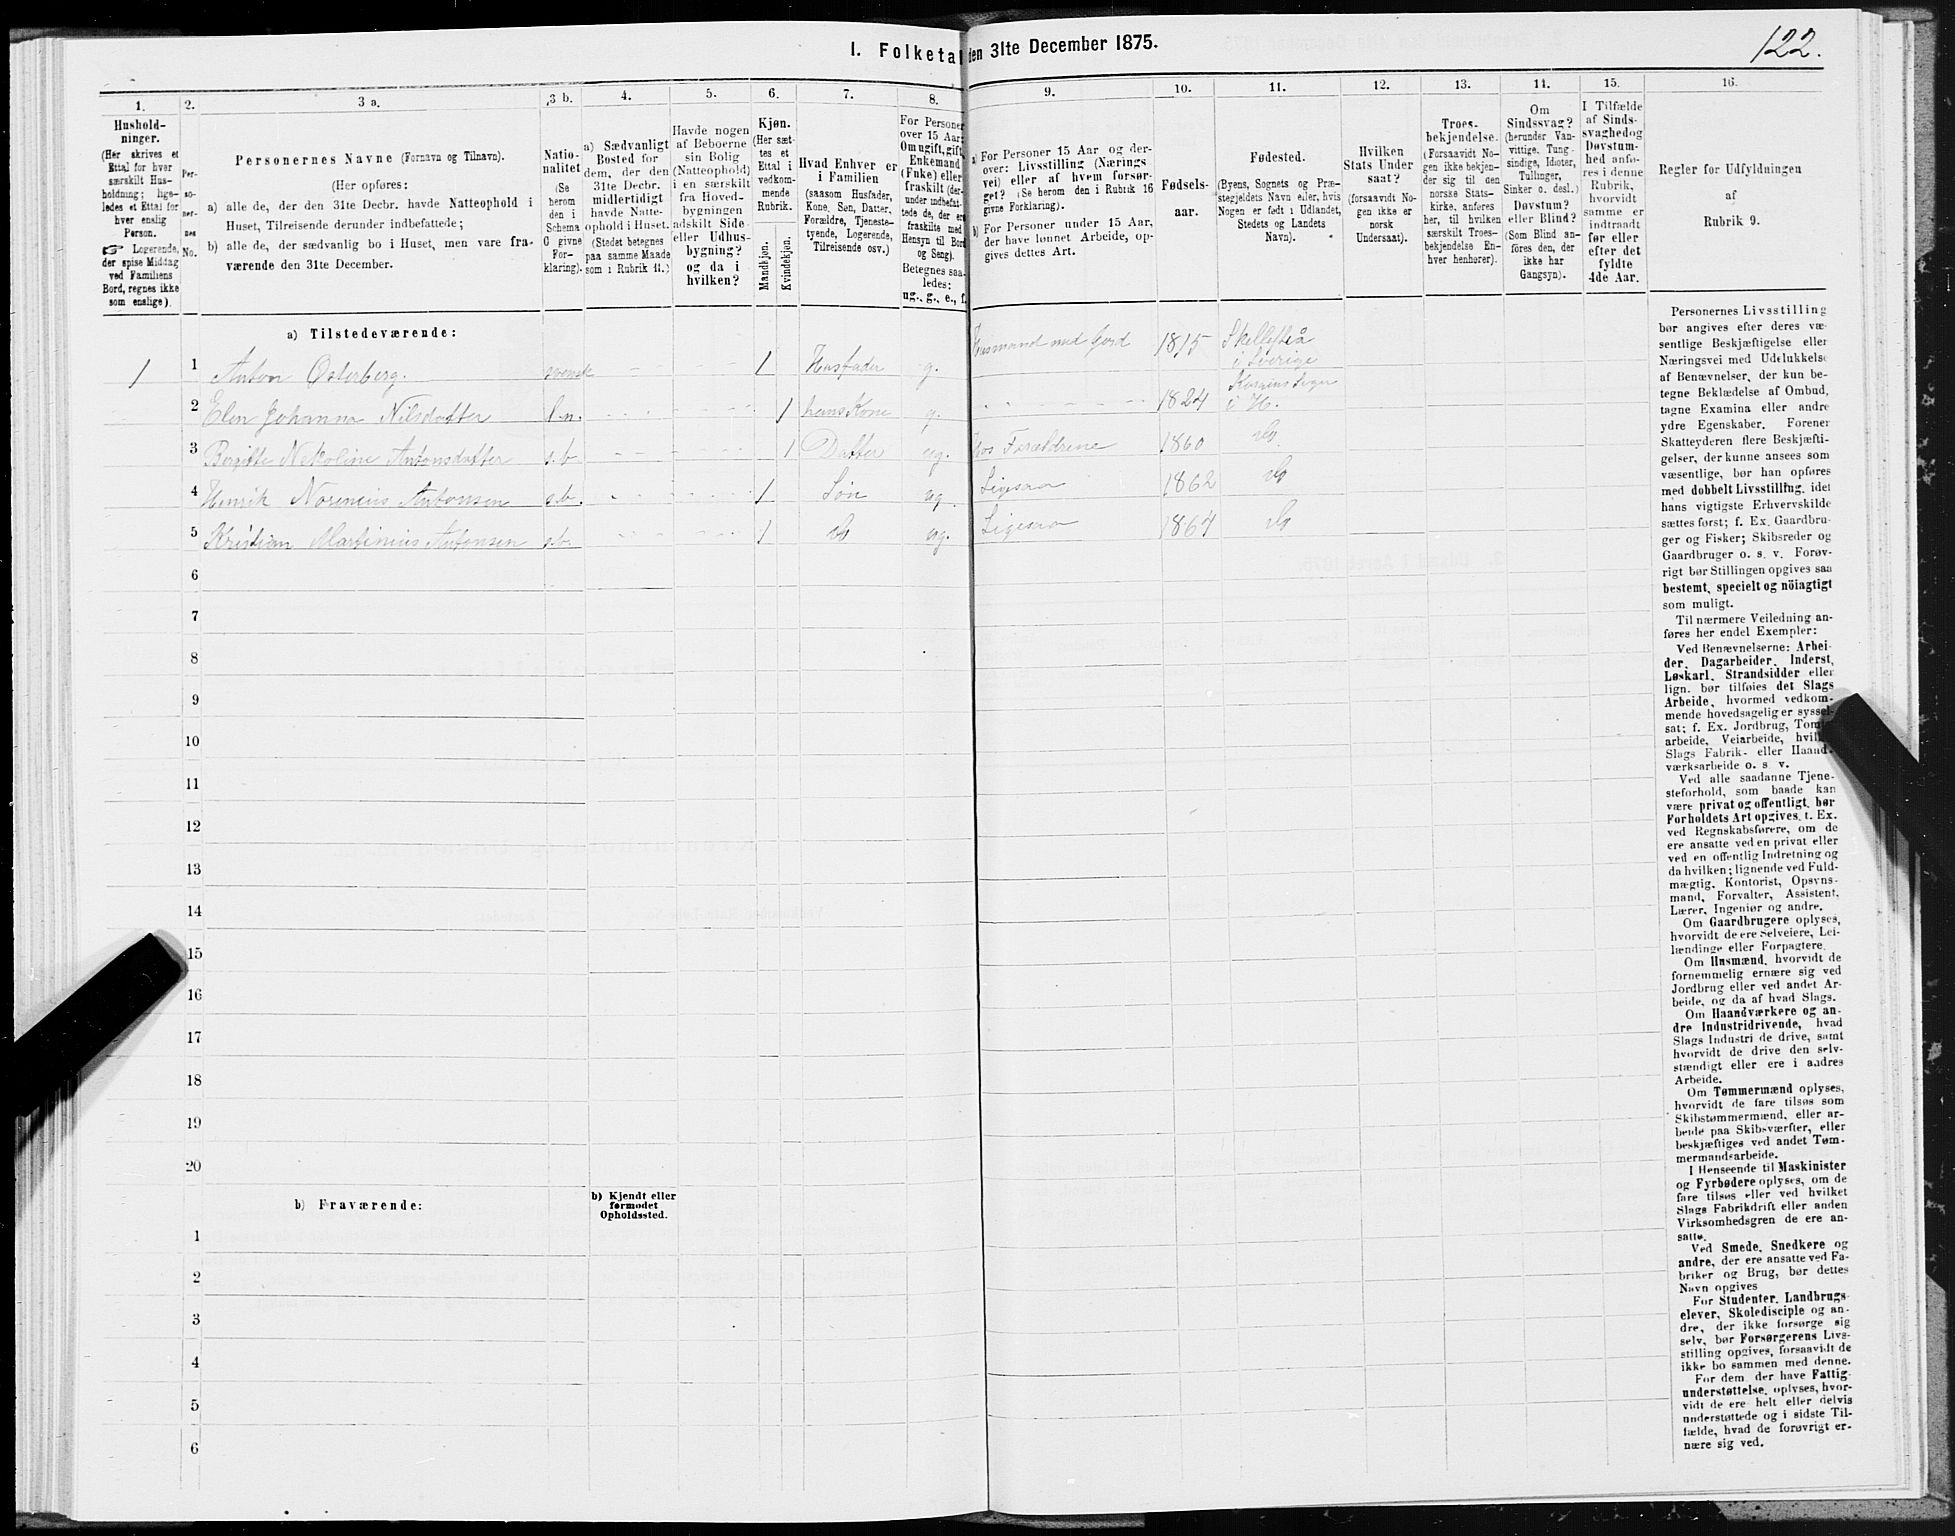 122.
I. Folketal den 31te December 1875.
1. 2. 3 a. 3 b. 4. 5. 6. 7. 8. 9. 10. 11. 12. 13. 14. 15. 16.
Hushold-
ninger.
(Her skrives et
Ettal for hver
særskilt Hus-
holdning; lige-
ledes et Ettal for
hver enslig
Person.
☞ Logerende,
der spise Middag
ved Familiens
Bord, regnes ikke
som enslige).
Per-
so-
ner-
nes
No.
Personernes Navne (Fornavn og Tilnavn).
(Her opføres:
a) alle de, der den 31te Decbr. havde Natteophold i
Huset, Tilreisende derunder indbefattede;
b) alle de, der sædvanlig bo i Huset, men vare fra-
værende den 31te December.
Natio-
nalitet
(Se
herom
den i
Schema
C givne
For-
klaring).
a) Sædvanligt
Bosted for
dem, der den
31te Decbr.
midlertidigt
havde Natte-
ophold i Huset.
(Stedet betegnes
paa samme Maade
som i Rubrik 11.)
Havde nogen
af Beboerne
sin Bolig
(Natteophold)
i en særskilt
fra Hoved-
bygningen
adskilt Side-
eller Udhus-
bygning?
og da i
hvilken?
Kjøn.
(Her sæt-
tes et
Ettal i
vedkom-
mende
Rubrik.
Mandkjøn.
Kvindekjøn.
Hvad Enhver er
i Familien
(saasom Husfader,
Kone, Søn, Datter,
Forældre, Tjeneste-
tyende, Logerende,
Tilreisende osv.)
For Personer
over 15 Aar:
Om ugift, gift,
Enkemand
(Enke) eller
fraskilt (der-
under indbefat-
tede de, der ere
fraskilte med
Hensyn til Bord
og Seng).
Betegnes saa-
ledes:
ug., g., e., f.
a) For Personer 15 Aar og der-
over: Livsstilling (Nærings-
vei) eller af hvem forsør-
get? (Se herom den i Rubrik 16
givne Forklaring).
b) For Personer under 15 Aar,
der have lønnet Arbeide, op-
gives dettes Art.
Fødsels-
aar.
Fødested.
(Byens, Sognets og Præ-
stegjeldets Navn eller, hvis
Nogen er født i Udlandet,
Stedets og Landets
Navn).
Hvilken
Stats Under-
saat?
(forsaavidt No-
gen ikke er
norsk
Undersaat).
Troes-
bekjendelse.
(Forsaavidt No-
gen ikke bekjen-
der sig til den
norske Stats-
kirke, anføres
her, til hvilken
særskilt Troes-
bekjendelse En-
hver henhører).
Om
Sindssvag?
(herunder Van-
vittige, Tung-
sindige, Idioter,
Tullinger,
Sinker o. desl.)
Døvstum?
eller Blind?
(Som Blind an-
føres den, der
ikke har
Gangsyn).
I Tilfælde
af Sinds-
svaghed og
Døvstum-
hed anfø-
res i denne
Rubrik,
hvorvidt
samme er
indtraadt
før eller
efter det
fyldte
4de Aar.
Regler for Udfyldningen
af
Rubrik 9.
a) Tilstedeværende:
1 1 Anton Østerberg. svensk 1 Husfader g. Husmand med Jord 1815 Skellefteå
i Sverige
2 Elen Johanna Nilsdatter l.n. 1 hans Kone g. 1824
i H.
3 Bergitte Nekoline Antonsdatter s.b. 1 Datter ug. hos Forældrene 1860 do
4 Henrik Norenius Antonsen s.b. 1 Søn ug. Ligesaa 1862 do
5 Kristian Martinius Antonsen s.b. 1 do ug. Ligesaa 1867 do
6
7
8
9
10
11
12
13
14
15
16
17
18
19
20
b) Fraværende:
b) Kjendt eller
formodet
Opholdssted.
1
2
3
4
5
6
Personernes Livsstilling
bør angives efter deres væ-
sentlige Beskjæftigelse eller
Næringsvei med Udelukkelse
af Benævnelser, der kun be-
tegne Beklædelse af Ombud,
tagne Examina eller andre
ydre Egenskaber. Forener
Skatteyderen flere Beskjæfti-
gelser, der kunne ansees som
væsentlige, bør han opføres
med dobbelt Livsstilling, idet
hans vigtigste Erhvervskilde
sættes først; f. Ex. Gaardbru-
ger og Fisker; Skibsreder og
Gaardbruger o. s. v. Forøv-
rigt bør Stillingen opgives saa
bestemt, specielt og nöiagtigt
som muligt.
Til nærmere Veiledning an-
føres her endel Exempler:
Ved Benævnelserne: Arbei-
der, Dagarbeider, Inderst,
Løskarl, Strandsidder eller
lign. bør tilføies det Slags
Arbeide, hvormed vedkom-
mende hovedsagelig er syssel-
sat; f. Ex. Jordbrug, Tomt-
arbeide, Veiarbeide, hvilket
Slags Fabrik- eller Haand-
værksarbeide o. s. v.
Ved alle saadanne Tjene-
steforhold, som baade kan
være privat og offentligt, bør
Forholdets Art opgives, t. Ex.
ved Regnskabsførere, om de
ere ansatte ved en privat eller
ved en offentlig Indretning og
da hvilken; lignende ved Fuld-
mægtig, Kontorist, Opsyns-
mand, Forvalter, Assistent,
Lærer, Ingeniør og andre.
Om Gaardbrugere oplyses,
hvorvidt de ere Selveiere, Lei-
lændinge eller Forpagtere.
Om Husmænd, hvorvidt de
fornemmelig ernære sig ved
Jordbrug eller ved andet Ar-
beide, og da af hvad Slags.
Om Haandværkere og an-
dre Industridrivende, hvad
Slags Industri de drive, samt
hvorvidt de drive den selv-
stændigt eller ere i andres
Arbeide.
Om Tømmermænd oplyses,
hvorvidt de fare tilsøs som
Skibstømmermænd, eller ar-
beide paa Skibsværfter, eller
beskjæftiges ved andet Tøm-
mermandsarbeide.
I Henseende til Maskinister
og Fyrbødere oplyses, om de
fare tilsøs eller ved hvilket
Slags Fabrikdrift eller anden
Virksomhedsgren de ere an-
satte.
Ved Smede, Snedkere og
andre, der ere ansatte ved Fa-
briker og Brug, bør dettes
Navn opgives
For Studenter, Landbrugs-
elever, Skoledisciple og an-
dre, der ikke forsørge sig
selv, bør Forsørgerens Livs-
stilling opgives, forsaavidt de
ikke bo sammen med denne.
For dem, der have Fattig-
understøttelse, oplyses, hvor-
vidt de ere helt eller delvis
understøttede og i sidste Til-
fælde, hvad de forøvrigt er-
nære sig ved.